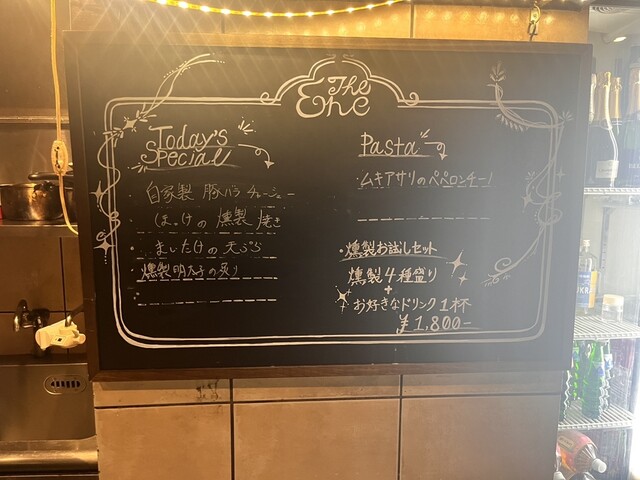 The
Ehe
Today's
Special
・自家製 豚バラチャーシュー
・ほっけの燻製焼き
・まいたけの天ぷら
・燻製明太子の炙り
Pasta
・ムキアサリのペペロンチーノ
・燻製お試しセット
燻製4種盛り
+
お好きなドリンク1杯
¥1,800-